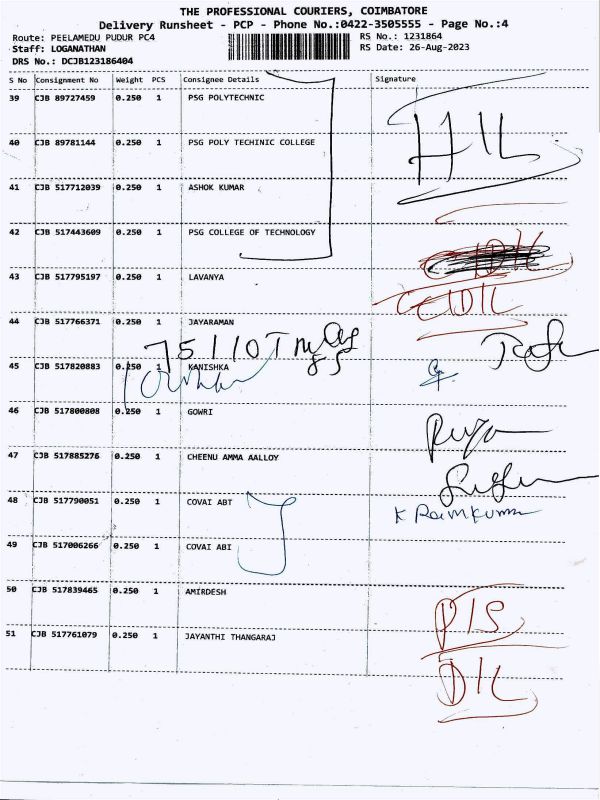 THE PROFESSIONAL COURIERS, COIMBATORE
Delivery Runsheet - PCP - Phone No.:0422-3505555 - Page No.:4
Route: PEELAMEDU PUDUR PC4 RS No.: 1231864
Staff: LOGANATHAN RS Date: 26-Aug-2023
DRS No.: DCJB123186404
S No Consignment No Weight PCS Consignee Details Signature
39 CJB 89727459 0.250 1 PSG POLYTECHNIC
40 CJB 89781144 0.250 1 PSG POLY TECHINIC COLLEGE
41 CJB 517712039 0.250 1 ASHOK KUMAR
42 CJB 517443609 0.250 1 PSG COLLEGE OF TECHNOLOGY
43 CJB 517795197 0.250 1 LAVANYA
44 CJB 517766371 0.250 1 JAYARAMAN
45 CJB 517820883 0.250 1 KANISHKA
46 CJB 517800808 0.250 1 GOWRI
47 CJB 517885276 0.250 1 CHEENU AMMA AALLOY
48 CJB 517790051 0.250 1 COVAI ABT K Ramkumar
49 CJB 517006266 0.250 1 COVAI ABI
50 CJB 517839465 0.250 1 AMIRDESH
51 CJB 517761079 0.250 1 JAYANTHI THANGARAJ
D/L